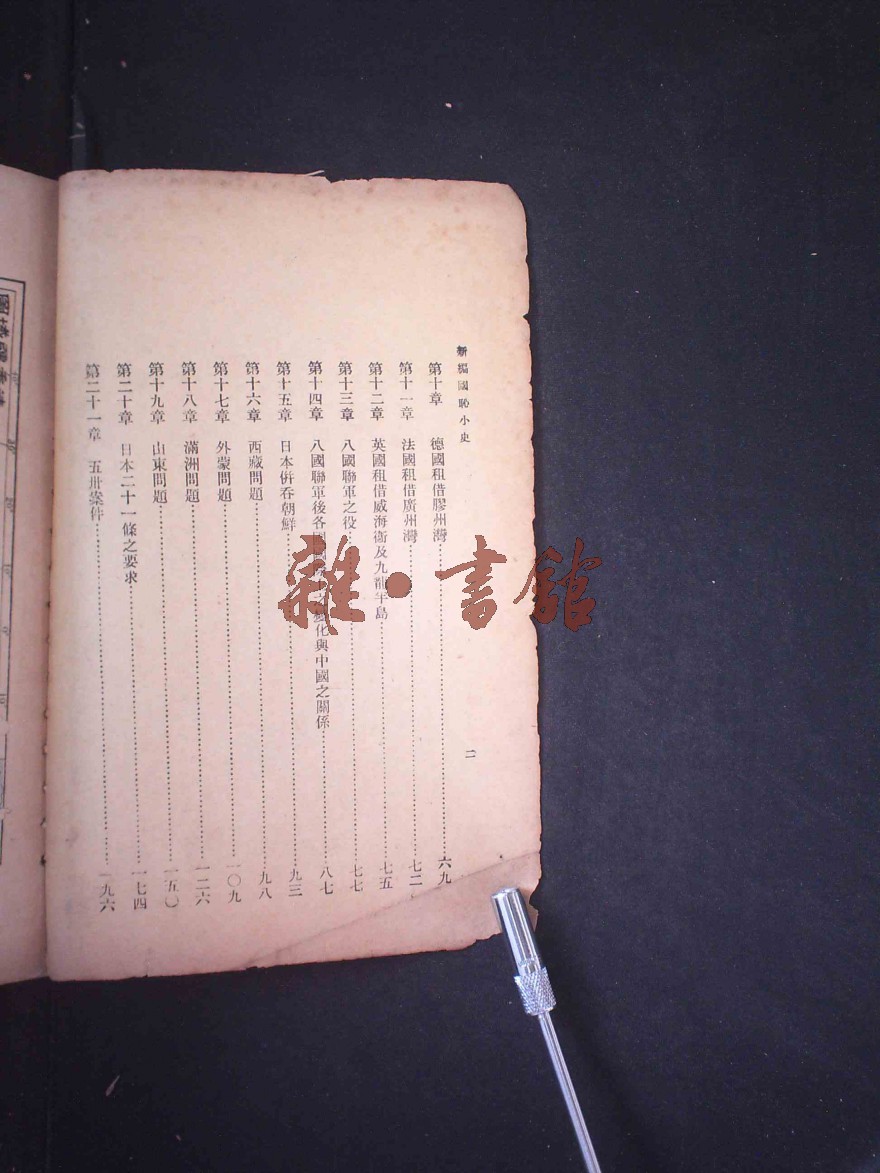 新編國恥小史
二
第十章　德國租借膠州灣……六九
第十一章　法國租借廣州灣……七二
第十二章　英國租借威海衞及九龍半島……七五
第十三章　八國聯軍之役……七七
第十四章　八國聯軍後各國 化與中國之關係……八七
第十五章　日本併吞朝鮮……九三
第十六章　西藏問題……九八
第十七章　外蒙問題……一〇九
第十八章　滿洲問題……一二六
第十九章　山東問題……一五〇
第二十章　日本二十一條之要求……一七四
第二十一章　五卅案件……一九六
雜·書館